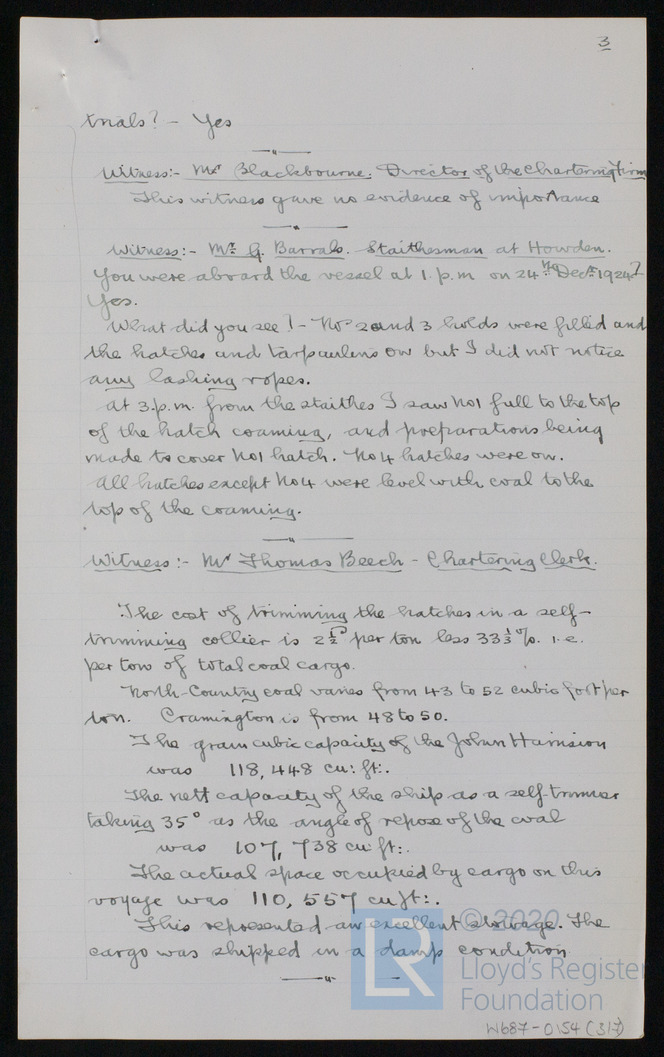 3
trials? - Yes
Witness:- Mr Blackbourne. Director of the Chartering Firm
This witness gave no evidence of importance
Witness:- Mr. G. Barrals. Staithesman at Howden.
You were aboard the vessel at 1.p.m on 24th Decr. 1924?
Yes.
What did you see? - Nos 2 and 3 holds were filled and
the hatches and tarpaulins on but I did not notice
any lashing ropes.
At 3.p.m. from the staithes I saw No1 full to the top
of the hatch coaming, and preparations being
made to cover No1 hatch. No4 hatches were on.
All hatches except No4 were level with coal to the
top of the coaming.
Witness:- Mr Thomas Beech - Chartering Clerk.
The cost of trimming the hatches in a self-
trimming collier is 2½ per ton less 33⅓%. i.e.
per ton of total coal cargo.
North-Country coal varies from 43 to 52 cubic foot per
ton. Cramington is from 48 to 50.
The grain cubic capacity of the John Harrison
was 118,448 cu: ft:.
The nett capacity of the ship as a self trimmer
taking 35° as the angle of repose of the coal
was 107,738 cu: ft:.
The actual space occupied by cargo on this
voyage was 110,557 cu ft:.
This represented an excellent stowage. The
cargo was shipped in a damp condition
© 2020
LR
Lloyd's Register
Foundation
W687-0154 (3/7)